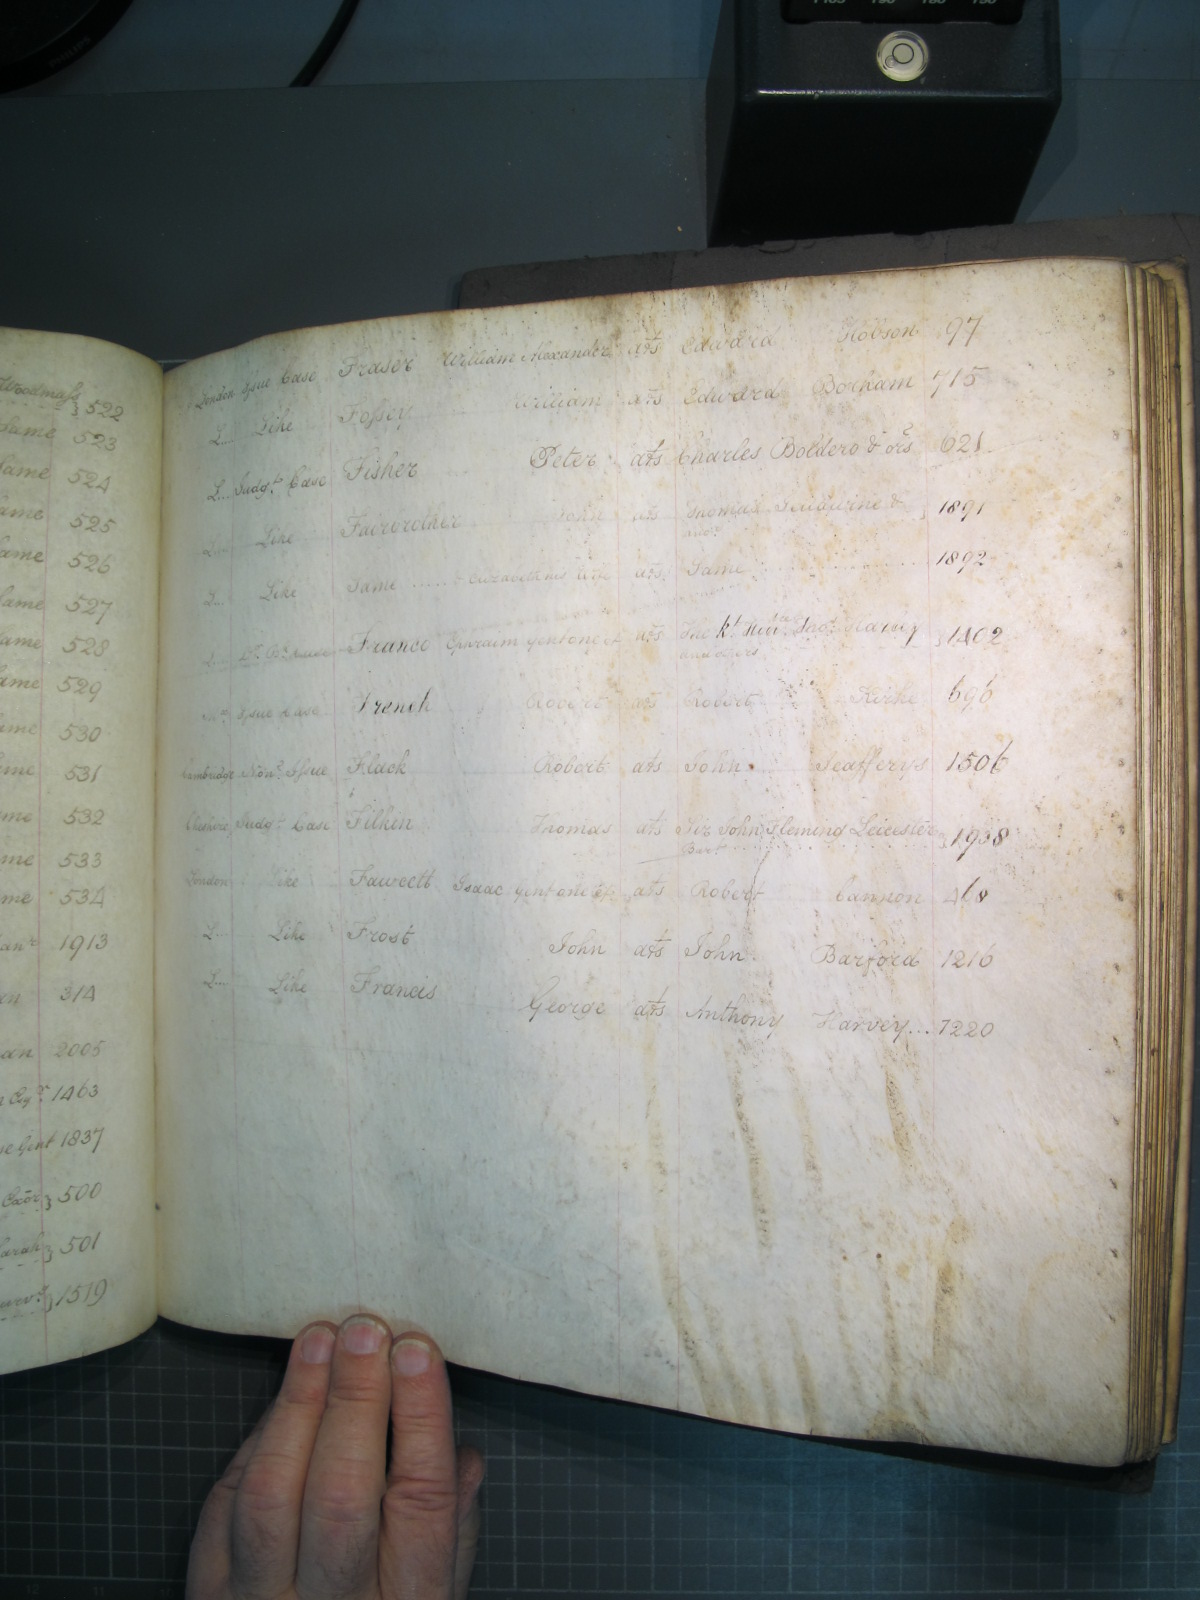 PHILIPS
Woodmass } 522
Same 523
Same 524
ame 525
ame 526
ame 527
ame 528
ame 529
me 530
me 531
me 532
me 533
me 534
1913
314
2005
1463
Gent 1837
Exōr } 500
Sarah } 501
} 1519
London Issue Case Fraser William Alexander ats Edward Hobson 97
L... Like Fossey William ats Edward Borham 715
L... Judgt. Case Fisher Peter ats Charles Boldero & ors 621
L... Like Fairbrother John ats Thomas & } 1891
anor.
L... Like Same ...... & Elizabeth his wife ats Same .......... 1892
L... France Ephraim Gent one &c ats The Rt. Thos. Harvey } 1402
and others
Issue Case French Robert ats Robert Kirke 696
Cambridge Nonp. Issue Flack Robert ats John Seafferys 1506
Cheshire Judgt. Case Filkin Thomas ats Sir John Fleming Leicester } 1938
Bart
London Like Fawcett Isaac Gent one &c. ats Robert Cannon 468
L... Like Frost John ats John Barford 1216
L... Like Francis George ats Anthony Harvey... 1220
12 11